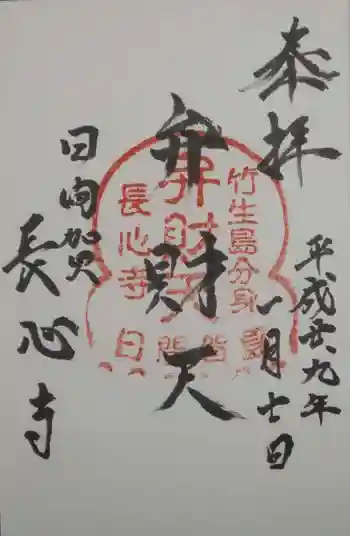 奉拝
平成廿九年
一月十日
弁財天
日向加久
長心寺
竹生島分身
弁財天
長心寺